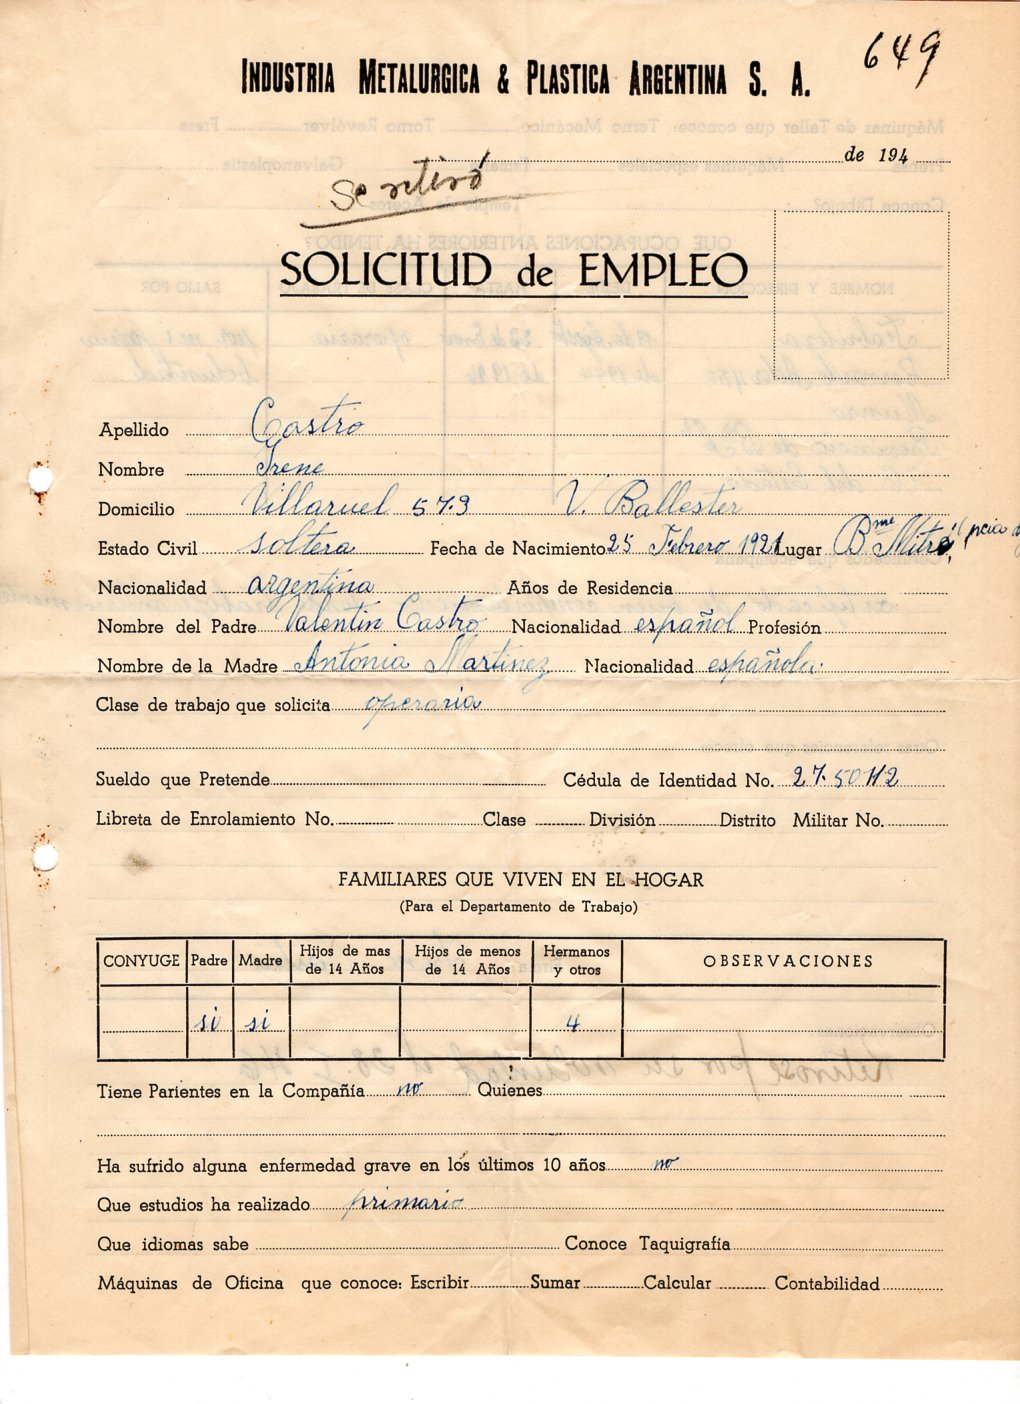 649
INDUSTRIA METALURGICA & PLASTICA ARGENTINA S. A.
de 194
Se retiró
SOLICITUD de EMPLEO
Apellido Castro
Nombre Irene
Domicilio Villaruel 579 V. Ballester
Estado Civil soltera Fecha de Nacimiento 25 Febrero 1921 Lugar Bme Mitre (pcia d
Nacionalidad argentina Años de Residencia
Nombre del Padre Valentín Castro Nacionalidad español Profesión
Nombre de la Madre Antonia Martínez Nacionalidad española
Clase de trabajo que solicita operaria
Sueldo que Pretende Cédula de Identidad No.
Libreta de Enrolamiento No. Clase División Distrito Militar No.
FAMILIARES QUE VIVEN EN EL HOGAR
(Para el Departamento de Trabajo)
CONYUGE Padre Madre Hijos de mas de 14 Años Hijos de menos de 14 Años Hermanos y otros OBSERVACIONES
si si 4
Tiene Parientes en la Compañía no Quienes
Ha sufrido alguna enfermedad grave en los últimos 10 años no
Que estudios ha realizado primario
Que idiomas sabe Conoce Taquigrafía
Máquinas de Oficina que conoce: Escribir Sumar Calcular Contabilidad